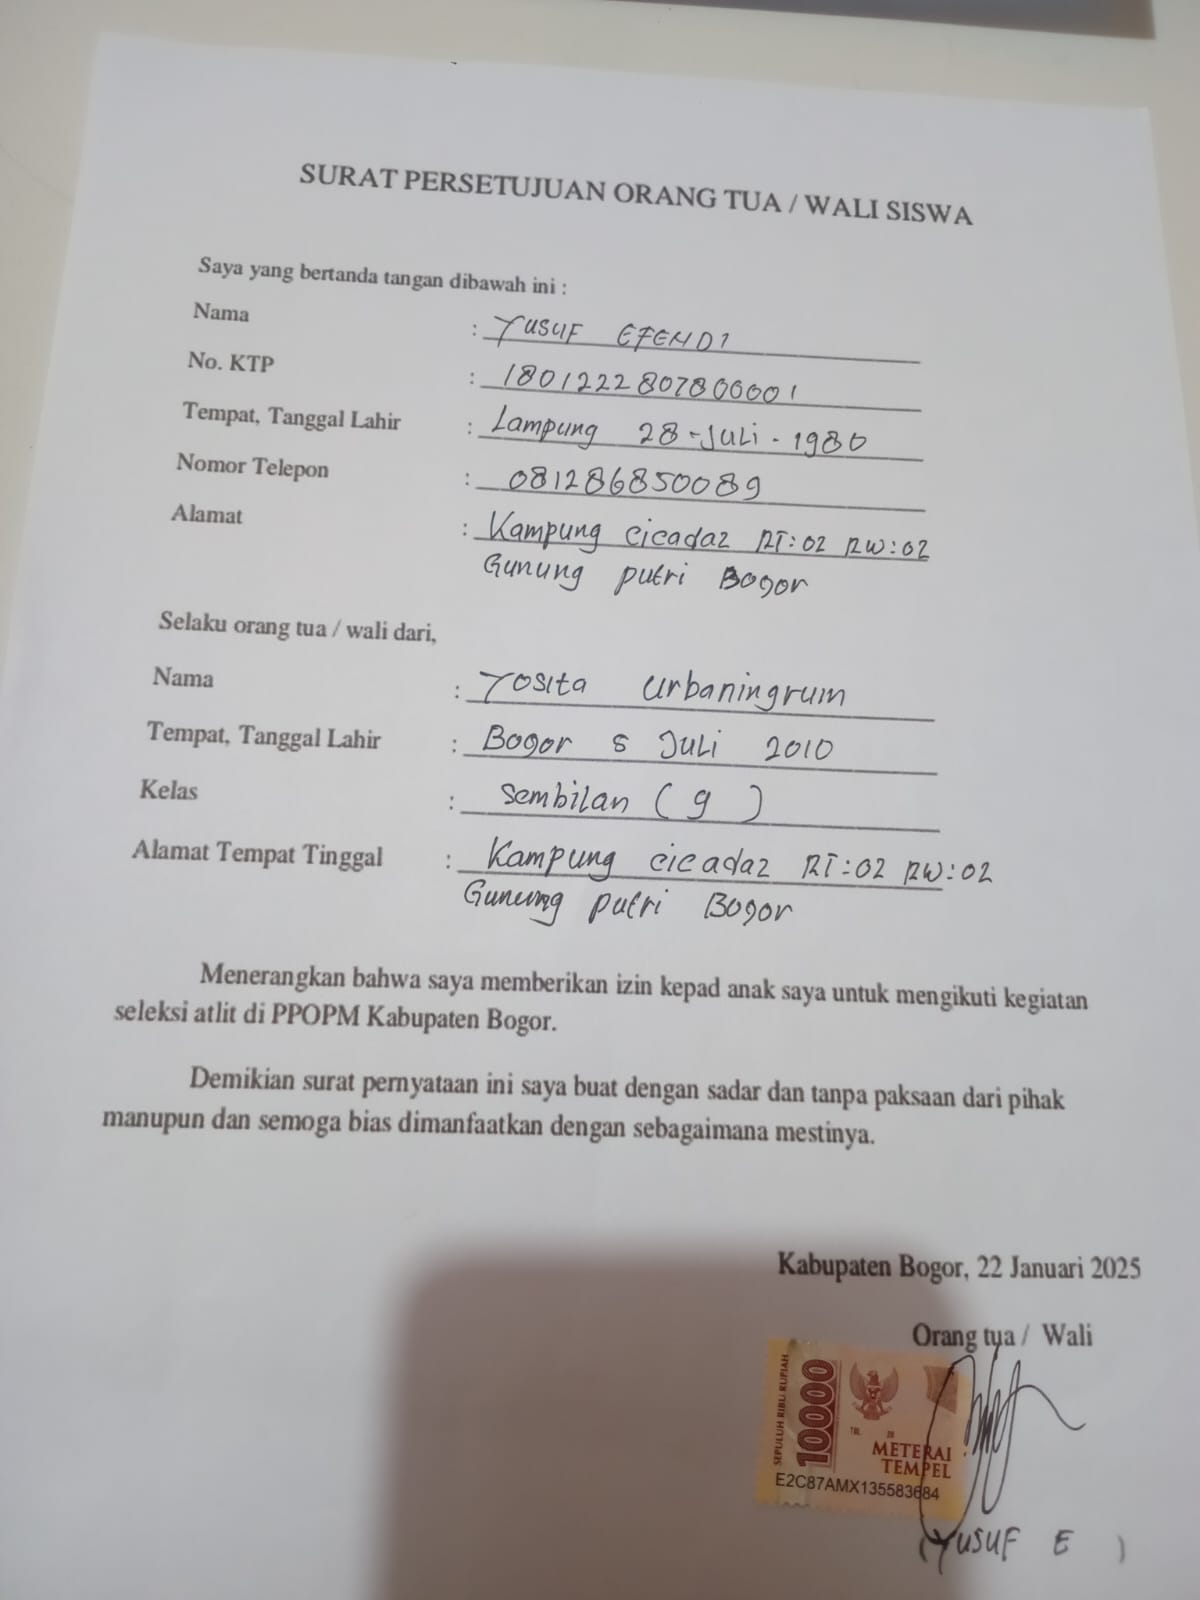 SURAT PERSETUJUAN ORANG TUA / WALI SISWA
Saya yang bertanda tangan dibawah ini :
Nama : YUSUF EFENDI
No. KTP : 1801222807800001
Tempat, Tanggal Lahir : Lampung 28-Juli-1980
Nomor Telepon : 081286850089
Alamat : Kampung cicadaz RT:02 RW:02
Gunung putri Bogor
Selaku orang tua / wali dari,
Nama : Yosita Urbaningrum
Tempat, Tanggal Lahir : Bogor 5 Juli 2010
Kelas : Sembilan ( 9 )
Alamat Tempat Tinggal : Kampung cicadaz RT:02 RW:02
Gunung putri Bogor
Menerangkan bahwa saya memberikan izin kepad anak saya untuk mengikuti kegiatan
seleksi atlit di PPOPM Kabupaten Bogor.
Demikian surat pernyataan ini saya buat dengan sadar dan tanpa paksaan dari pihak
manupun dan semoga bias dimanfaatkan dengan sebagaimana mestinya.
Kabupaten Bogor, 22 Januari 2025
Orang tua / Wali
SEPULUH RIBU RUPIAH
10000
METERAI
TEMPEL
E2C87AMX135583684
(YUSUF E )